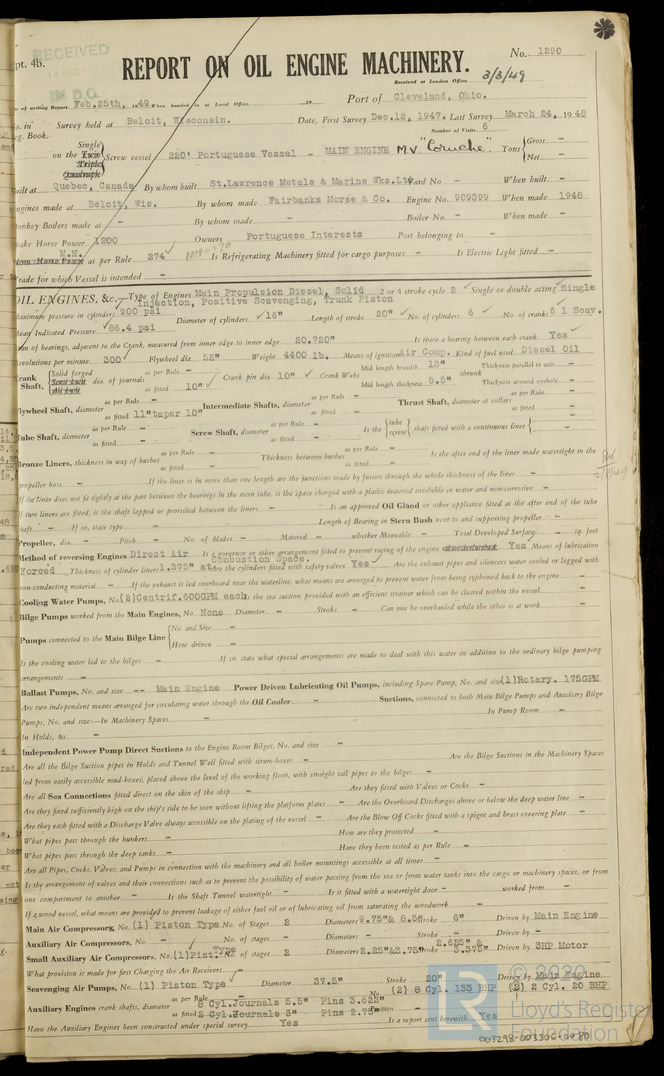 pt. 4b.
RECEIVED
IN D.O.
REPORT ON OIL ENGINE MACHINERY.
No. 1290
Received at London Office 3/3/49
of writing Report Feb.25th, 1949. When handed in at Local Office 19 Port of Cleveland, Ohio.
No. in Survey held at Beloit, Wisconsin. Date, First Survey Dec.12, 1947. Last Survey March 24, 1948
Reg. Book. Number of Visits 6
on the Single Twin Triple Quadruple Screw vessel 220' Portuguese Vessel - MAIN ENGINE M.V "Coruche" Tons Gross - Net -
Built at Quebec, Canada By whom built St.Lawrence Metals & Marine Wks.Ltd Yard No. - When built -
Engines made at Beloit, Wis. By whom made Fairbanks Morse & Co. Engine No. 909399 When made 1948
Donkey Boilers made at - By whom made - Boiler No. - When made -
Brake Horse Power 1200 Owners Portuguese Interests Port belonging to -
M.N. as per Rule 274 Is Refrigerating Machinery fitted for cargo purposes - Is Electric Light fitted -
Trade for which Vessel is intended -
OIL ENGINES, &c. Type of Engines Main Propulsion Diesel, Solid 2 or 4 stroke cycle 2 Single or double acting Single
Injection, Positive Scavenging, Trunk Piston
Maximum pressure in cylinders 900 psi Diameter of cylinders 16" Length of stroke 20" No. of cylinders 6 No. of cranks 6 1 Scav.
Mean Indicated Pressure 86.4 psi
Span of bearings, adjacent to the Crank, measured from inner edge to inner edge 20.720" Is there a bearing between each crank Yes
Revolutions per minute 300 Flywheel dia. 52" Weight 4400 lb. Means of ignition Air Comp. Kind of fuel used Diesel Oil
Crank Shaft, Solid forged Semi built All built dia. of journals as per Rule - as fitted 10" Crank pin dia. 10" Crank Webs Mid length breadth 13" Mid length thickness 5.5" shrunk Thickness parallel to axis - Thickness around eyehole -
Flywheel Shaft, diameter as per Rule - as fitted 11"taper 10" Intermediate Shafts, diameter as per Rule - as fitted - Thrust Shaft, diameter at collars as per Rule - as fitted -
Tube Shaft, diameter as per Rule - as fitted - Screw Shaft, diameter as per Rule - as fitted - Is the tube screw shaft fitted with a continuous liner -
Bronze Liners, thickness in way of bushes as per Rule - as fitted - Thickness between bushes as per Rule - as fitted - Is the after end of the liner made watertight in the
propeller boss - If the liner is in more than one length are the junctions made by fusion through the whole thickness of the liner -
If the liner does not fit tightly at the part between the bearings in the stern tube, is the space charged with a plastic material insoluble in water and non-corrosive -
If two liners are fitted, is the shaft lapped or protected between the liners - Is an approved Oil Gland or other appliance fitted at the after end of the tube
shaft - If so, state type - Length of Bearing in Stern Bush next to and supporting propeller -
Propeller, dia. - Pitch - No. of blades - Material - whether Moveable - Total Developed Surface - sq. feet
Method of reversing Engines Direct Air Is a governor or other arrangement fitted to prevent racing of the engine when declutched Yes Means of lubrication
Forced Thickness of cylinder liners 1.375" at Combustion Space. Are the cylinders fitted with safety valves Yes Are the exhaust pipes and silencers water cooled or lagged with
non-conducting material - If the exhaust is led overboard near the waterline, what means are arranged to prevent water from being syphoned back to the engine -
Cooling Water Pumps, No. (2)Centrif.600GPM each Is the sea suction provided with an efficient strainer which can be cleared within the vessel -
Bilge Pumps worked from the Main Engines, No. None Diameter - Stroke - Can one be overhauled while the other is at work -
Pumps connected to the Main Bilge Line No. and Size - How driven -
Is the cooling water led to the bilges - If so, state what special arrangements are made to deal with this water in addition to the ordinary bilge pumping
arrangements -
Ballast Pumps, No. and size -- Main Engine Power Driven Lubricating Oil Pumps, including Spare Pump, No. and size (1)Rotary. 175GPM
Are two independent means arranged for circulating water through the Oil Cooler - Suctions, connected to both Main Bilge Pumps and Auxiliary Bilge
Pumps, No. and size:-In Machinery Spaces - In Pump Room -
In Holds, &c. -
Independent Power Pump Direct Suctions to the Engine Room Bilges, No. and size -
Are all the Bilge Suction pipes in Holds and Tunnel Well fitted with strum-boxes - Are the Bilge Suctions in the Machinery Spaces
led from easily accessible mud-boxes, placed above the level of the working floor, with straight tail pipes to the bilges -
Are all Sea Connections fitted direct on the skin of the ship - Are they fitted with Valves or Cocks -
Are they fixed sufficiently high on the ship's side to be seen without lifting the platform plates - Are the Overboard Discharges above or below the deep water line -
Are they each fitted with a Discharge Valve always accessible on the plating of the vessel - Are the Blow Off Cocks fitted with a spigot and brass covering plate -
What pipes pass through the bunkers - How are they protected -
What pipes pass through the deep tanks - Have they been tested as per Rule -
Are all Pipes, Cocks, Valves, and Pumps in connection with the machinery and all boiler mountings accessible at all times -
Is the arrangement of valves and their connections such as to prevent the possibility of water passing from the sea or from water tanks into the cargo or machinery spaces, or from
one compartment to another - Is the Shaft Tunnel watertight - Is it fitted with a watertight door - worked from -
If a wood vessel, what means are provided to prevent leakage of either fuel oil or of lubricating oil from saturating the woodwork -
Main Air Compressors, No. (1) Piston Type No. of Stages 2 Diameters 9.75"& 8.5" Stroke 6" Driven by Main Engine
Auxiliary Air Compressors, No. - No. of stages - Diameters - Stroke - Driven by -
Small Auxiliary Air Compressors, No. (1)Pist. Type No. of stages 2 Diameters 2.25"&3.75" Stroke 2.625" & 3.375" Driven by 3HP Motor
What provision is made for first Charging the Air Receivers -
Scavenging Air Pumps, No. (1) Piston Type Diameter 37.5" Stroke 20" Driven by Main Engine
Auxiliary Engines crank shafts, diameter as per Rule 8 Cyl.Journals 5.5" Pins 3.622" as fitted 2 Cyl.Journals 3" Pins 2.75" No. (2) 8 Cyl. 133 BHP (2) 2 Cyl. 20 BHP
Have the Auxiliary Engines been constructed under special survey Yes Is a report sent herewith Yes
© 2020
Lloyd's Register
Foundation
003298-003306-0080